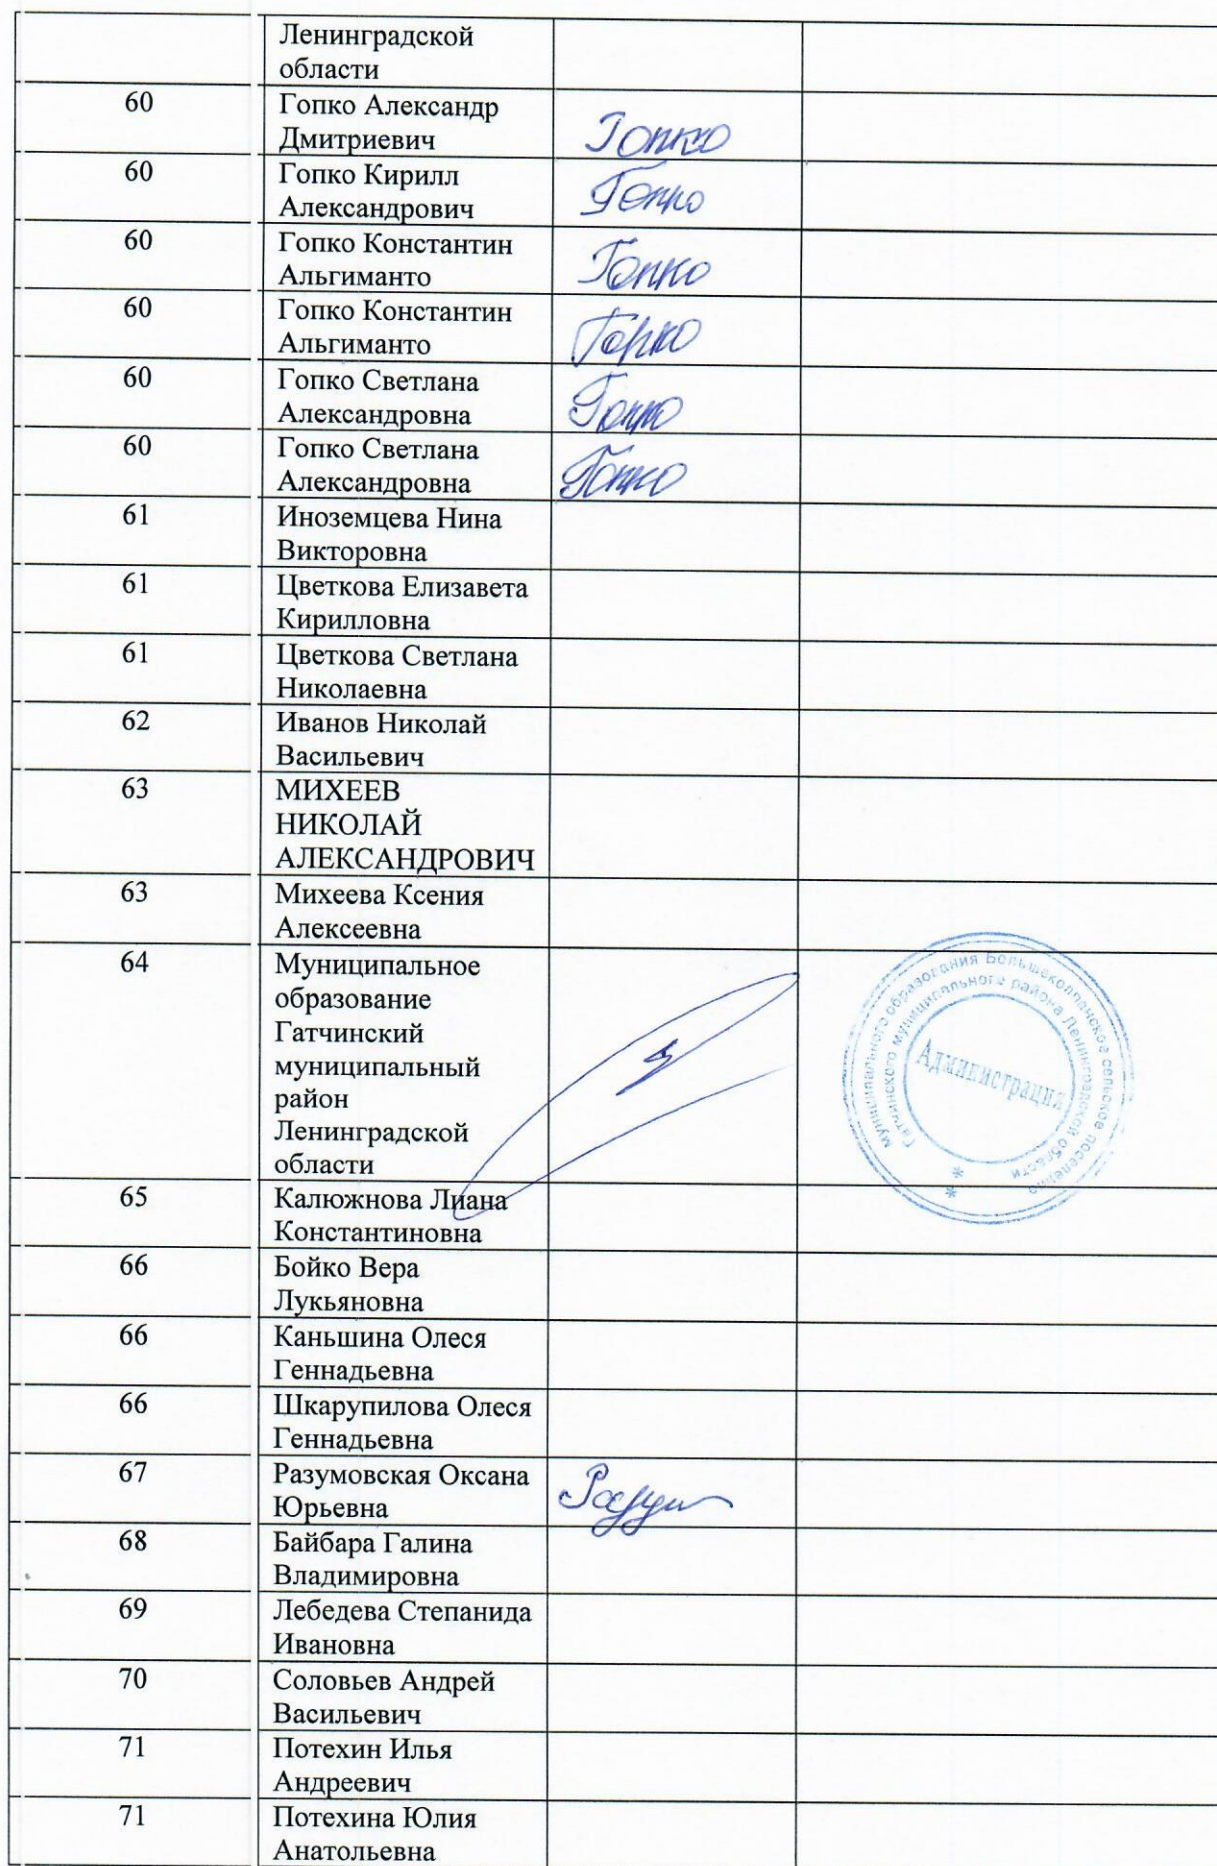 Ленинградской
области
60
Гопко Александр
Дмитриевич
Гопко
60
Гопко Кирилл
Александрович
Гопко
60
Гопко Константин
Альгиманто
Гопко
60
Гопко Константин
Альгиманто
Гопко
60
Гопко Светлана
Александровна
Гопко
60
Гопко Светлана
Александровна
Гопко
61
Иноземцева Нина
Викторовна
61
Цветкова Елизавета
Кирилловна
61
Цветкова Светлана
Николаевна
62
Иванов Николай
Васильевич
63
МИХЕЕВ
НИКОЛАЙ
АЛЕКСАНДРОВИЧ
63
Михеева Ксения
Алексеевна
64
Муниципальное
образование
Гатчинский
муниципальный
район
Ленинградской
области
муниципального образования Большеколпанское сельское поселение
Гатчинского муниципального района Ленинградской области
Администрация
* *
65
Калюжнова Лиана
Константиновна
66
Бойко Вера
Лукьяновна
66
Каньшина Олеся
Геннадьевна
66
Шкарупилова Олеся
Геннадьевна
67
Разумовская Оксана
Юрьевна
68
Байбара Галина
Владимировна
69
Лебедева Степанида
Ивановна
70
Соловьев Андрей
Васильевич
71
Потехин Илья
Андреевич
71
Потехина Юлия
Анатольевна